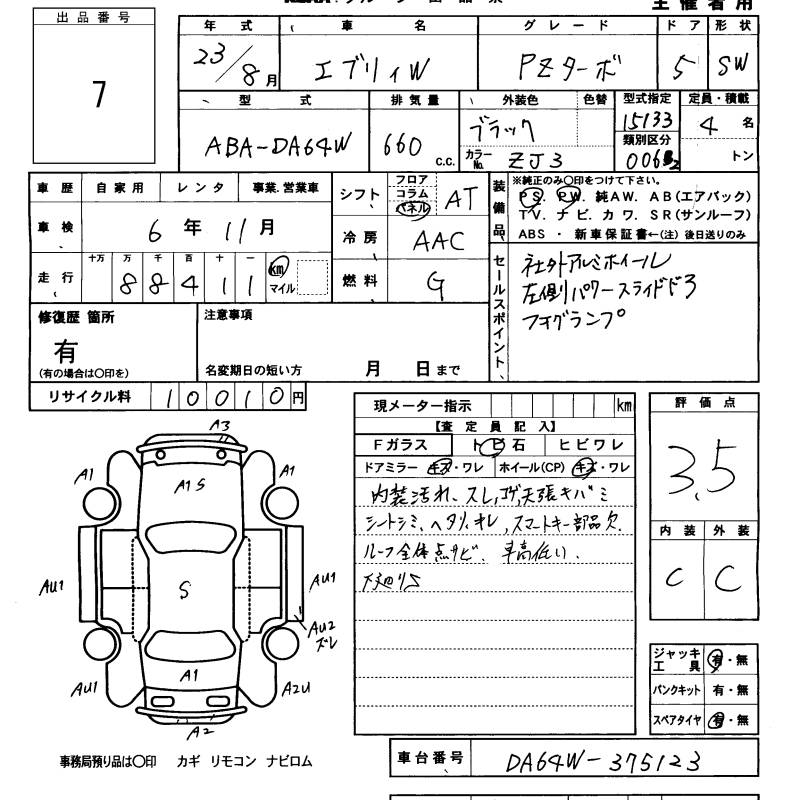 主催者用
出品番号
7
年式 車名 グレード ドア 形状
23/8月 エブリィW PZターボ 5 SW
型式 排気量 外装色 色替 型式指定 定員・積載
ABA-DA64W 660 c.c. ブラック 15133 4名
カラーNo. ZJ3 類別区分 トン
車歴 自家用 レンタ 事業.営業車
車検 6年11月
走行 十万 万 千 百 十 一
88411 km マイル
シフト フロア コラム パネル AT
冷房 AAC
燃料 G
装備品
※純正のみ〇印をつけて下さい。
PS. PW. 純AW. AB(エアバック)
TV. ナビ. カワ. SR(サンルーフ)
ABS・新車保証書←(注)後日送りのみ
セールスポイント
社外アルミホイール
左側パワースライドドア
フォグランプ
修復歴 箇所
有
(有の場合は〇印を)
注意事項
名変期日の短い方 月 日まで
リサイクル料 10010円
現メーター指示 km
【査定員記入】
Fガラス トビ石 ヒビワレ
ドアミラー キズ・ワレ ホイール(CP) キズ・ワレ
内装汚れ、スレ、コゲ、天張キバミ
シートシミ、ヘタリ、オレ、スマートキー部品欠
ルーフ全体点サビ、車高低い、
下廻りS
評価点
3.5
内装 外装
C C
A3
A1
A1S
A1
AU1
S
AU1
AU2
ズレ
AU1
A1
A2U
A2
ジャッキ工具 有・無
パンクキット 有・無
スペアタイヤ 有・無
事務局預り品は〇印 カギ リモコン ナビロム
車台番号 DA64W-375123